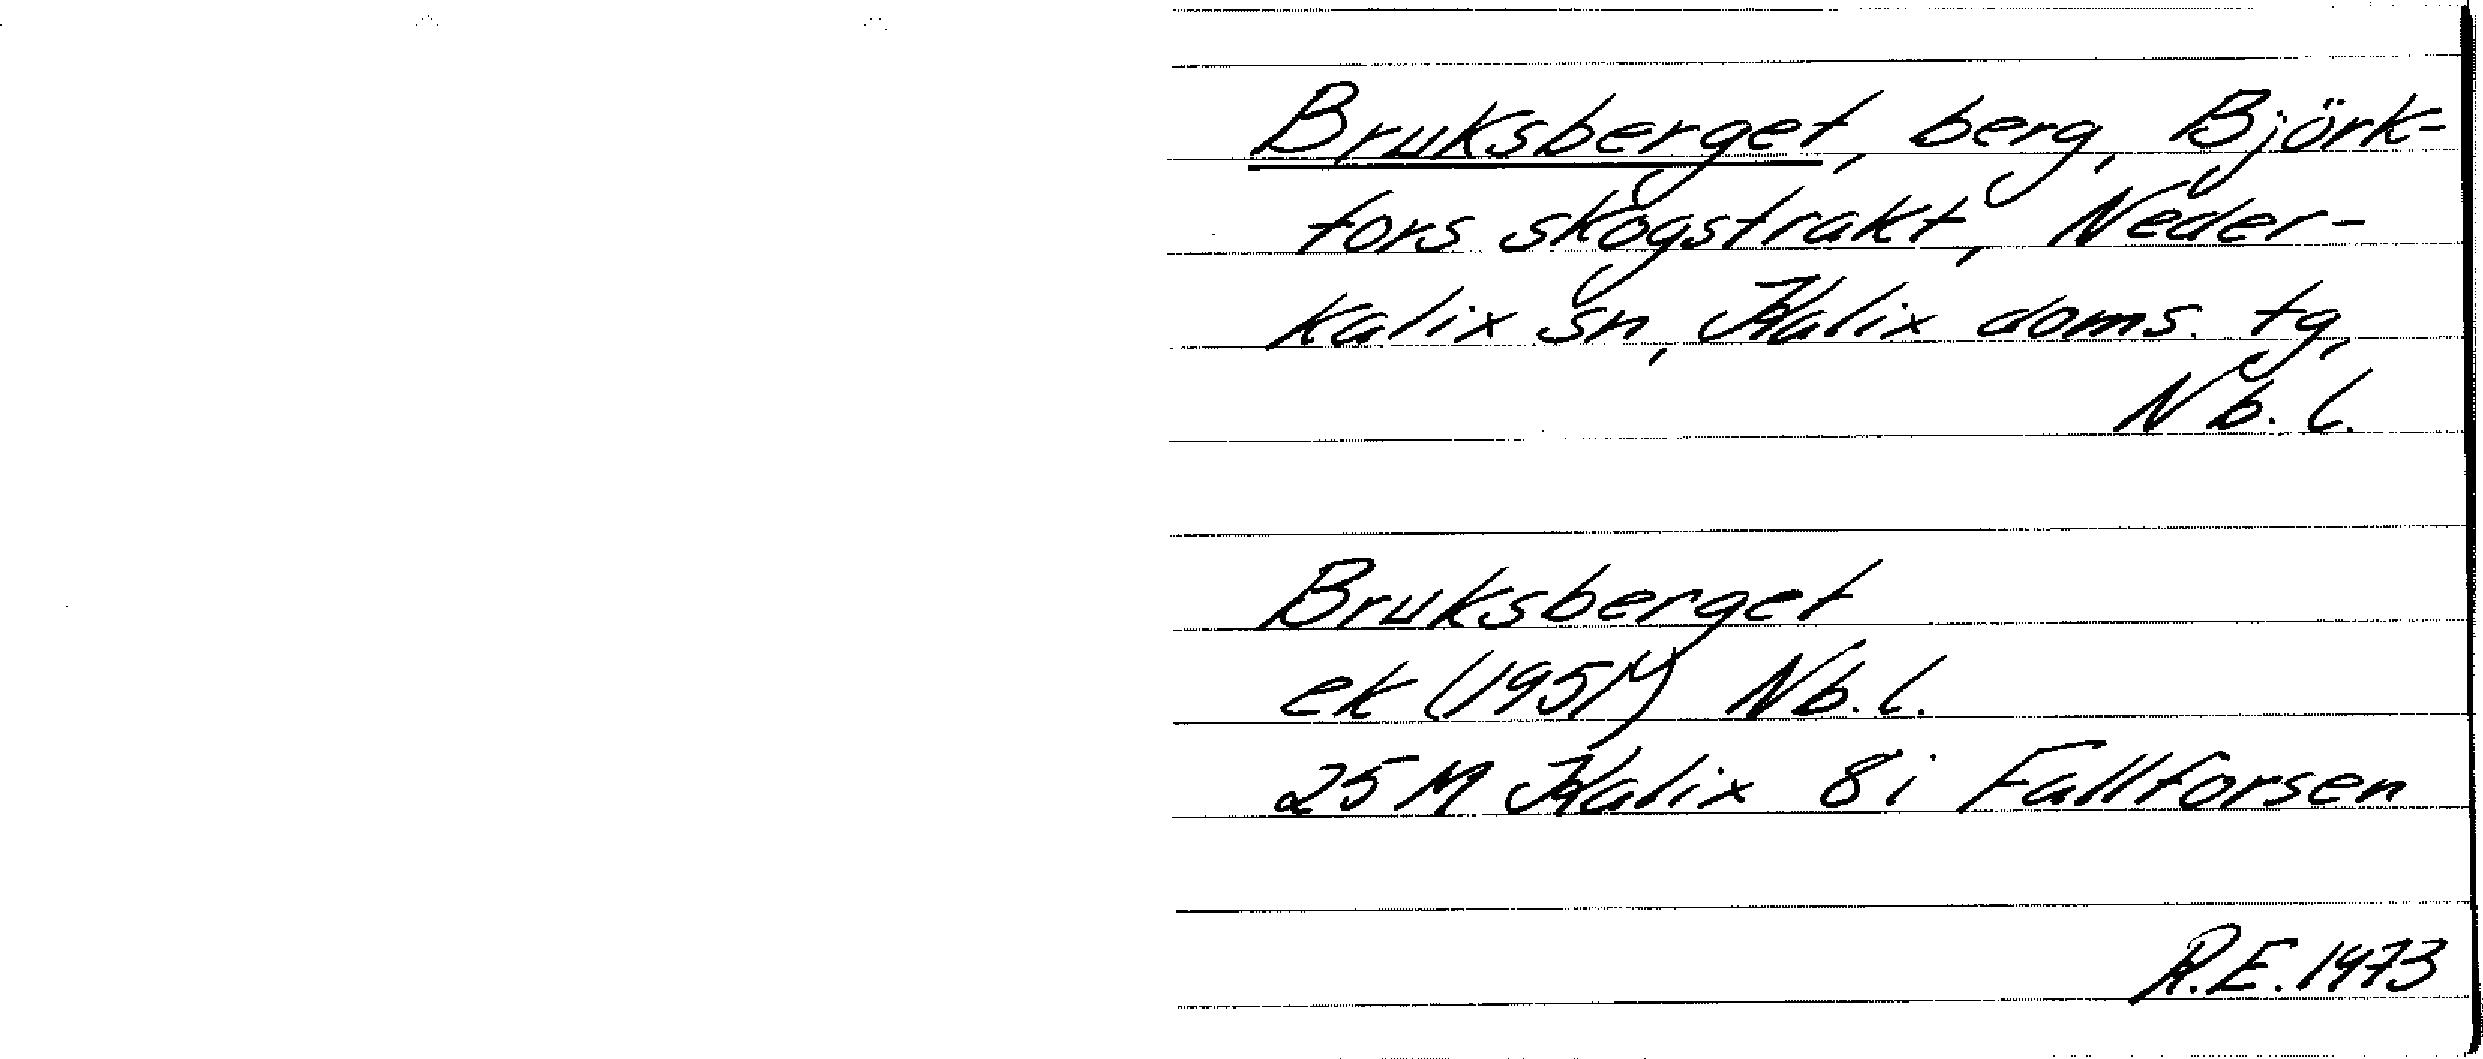 Bruksberget, berg, Björk-
fors skogstrakt, Neder-
kalix sn, Kalix doms. tg,
Nb. l.
Bruksberget
ek (1951) Nb. l.
25 M Kalix 8i Fallforsen
R.E. 1973